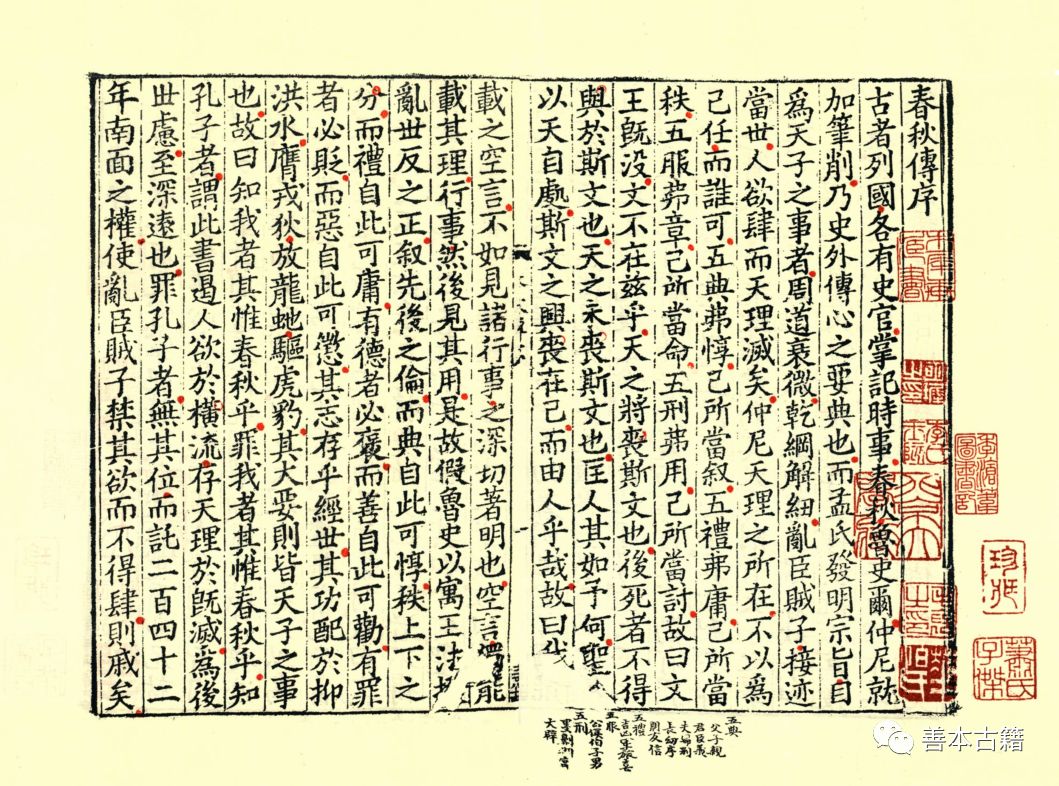 春秋傳序
古者列國各有史官掌記時事春秋魯史爾仲尼就
加筆削乃史外傳心之要典也而孟氏發明宗旨目
爲天子之事者周道衰微乾綱解紐亂臣賊子接迹
當世人欲肆而天理滅矣仲尼天理之所在不以爲
己任而誰可五典弗惇己所當叙五禮弗庸己所當
秩五服弗章己所當命五刑弗用己所當討故曰文
王旣没文不在兹乎天之將喪斯文也後死者不得
與於斯文也天之未喪斯文也匡人其如予何聖人
以天自處斯文之興喪在己而由人乎哉故曰我
載之空言不如見諸行事之深切著明也空言獨能
載其理行事然後見其用是故假魯史以寓王法撥
亂世反之正叙先後之倫而典自此可惇秩上下之
分而禮自此可庸有德者必褒而善自此可勸有罪
者必貶而惡自此可懲其志存乎經世其功配於抑
洪水膺戎狄放龍虵驅虎豹其大要則皆天子之事
也故曰知我者其惟春秋乎罪我者其惟春秋乎知
孔子者謂此書遏人欲於橫流存天理於旣滅爲後
世慮至深遠也罪孔子者無其位而託二百四十二
年南面之權使亂臣賊子禁其欲而不得肆則戚矣
五典
父子親
君臣義
夫婦別
長幼序
朋友信
五禮
吉凶軍賓嘉
五服
公侯伯子男
五刑
墨劓剕宮
大辟
善本古籍